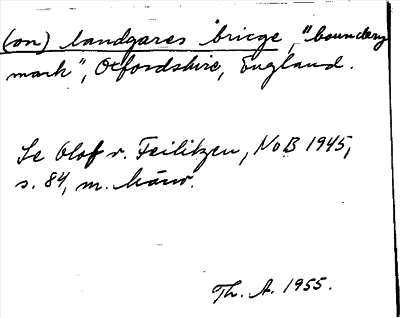 (on) landgares bricge, "boundary
mark", Oxfordshire, England.
Se Olof v. Feilitzen, NoB 1945,
s. 84, m. hänv.
Th. A. 1955.